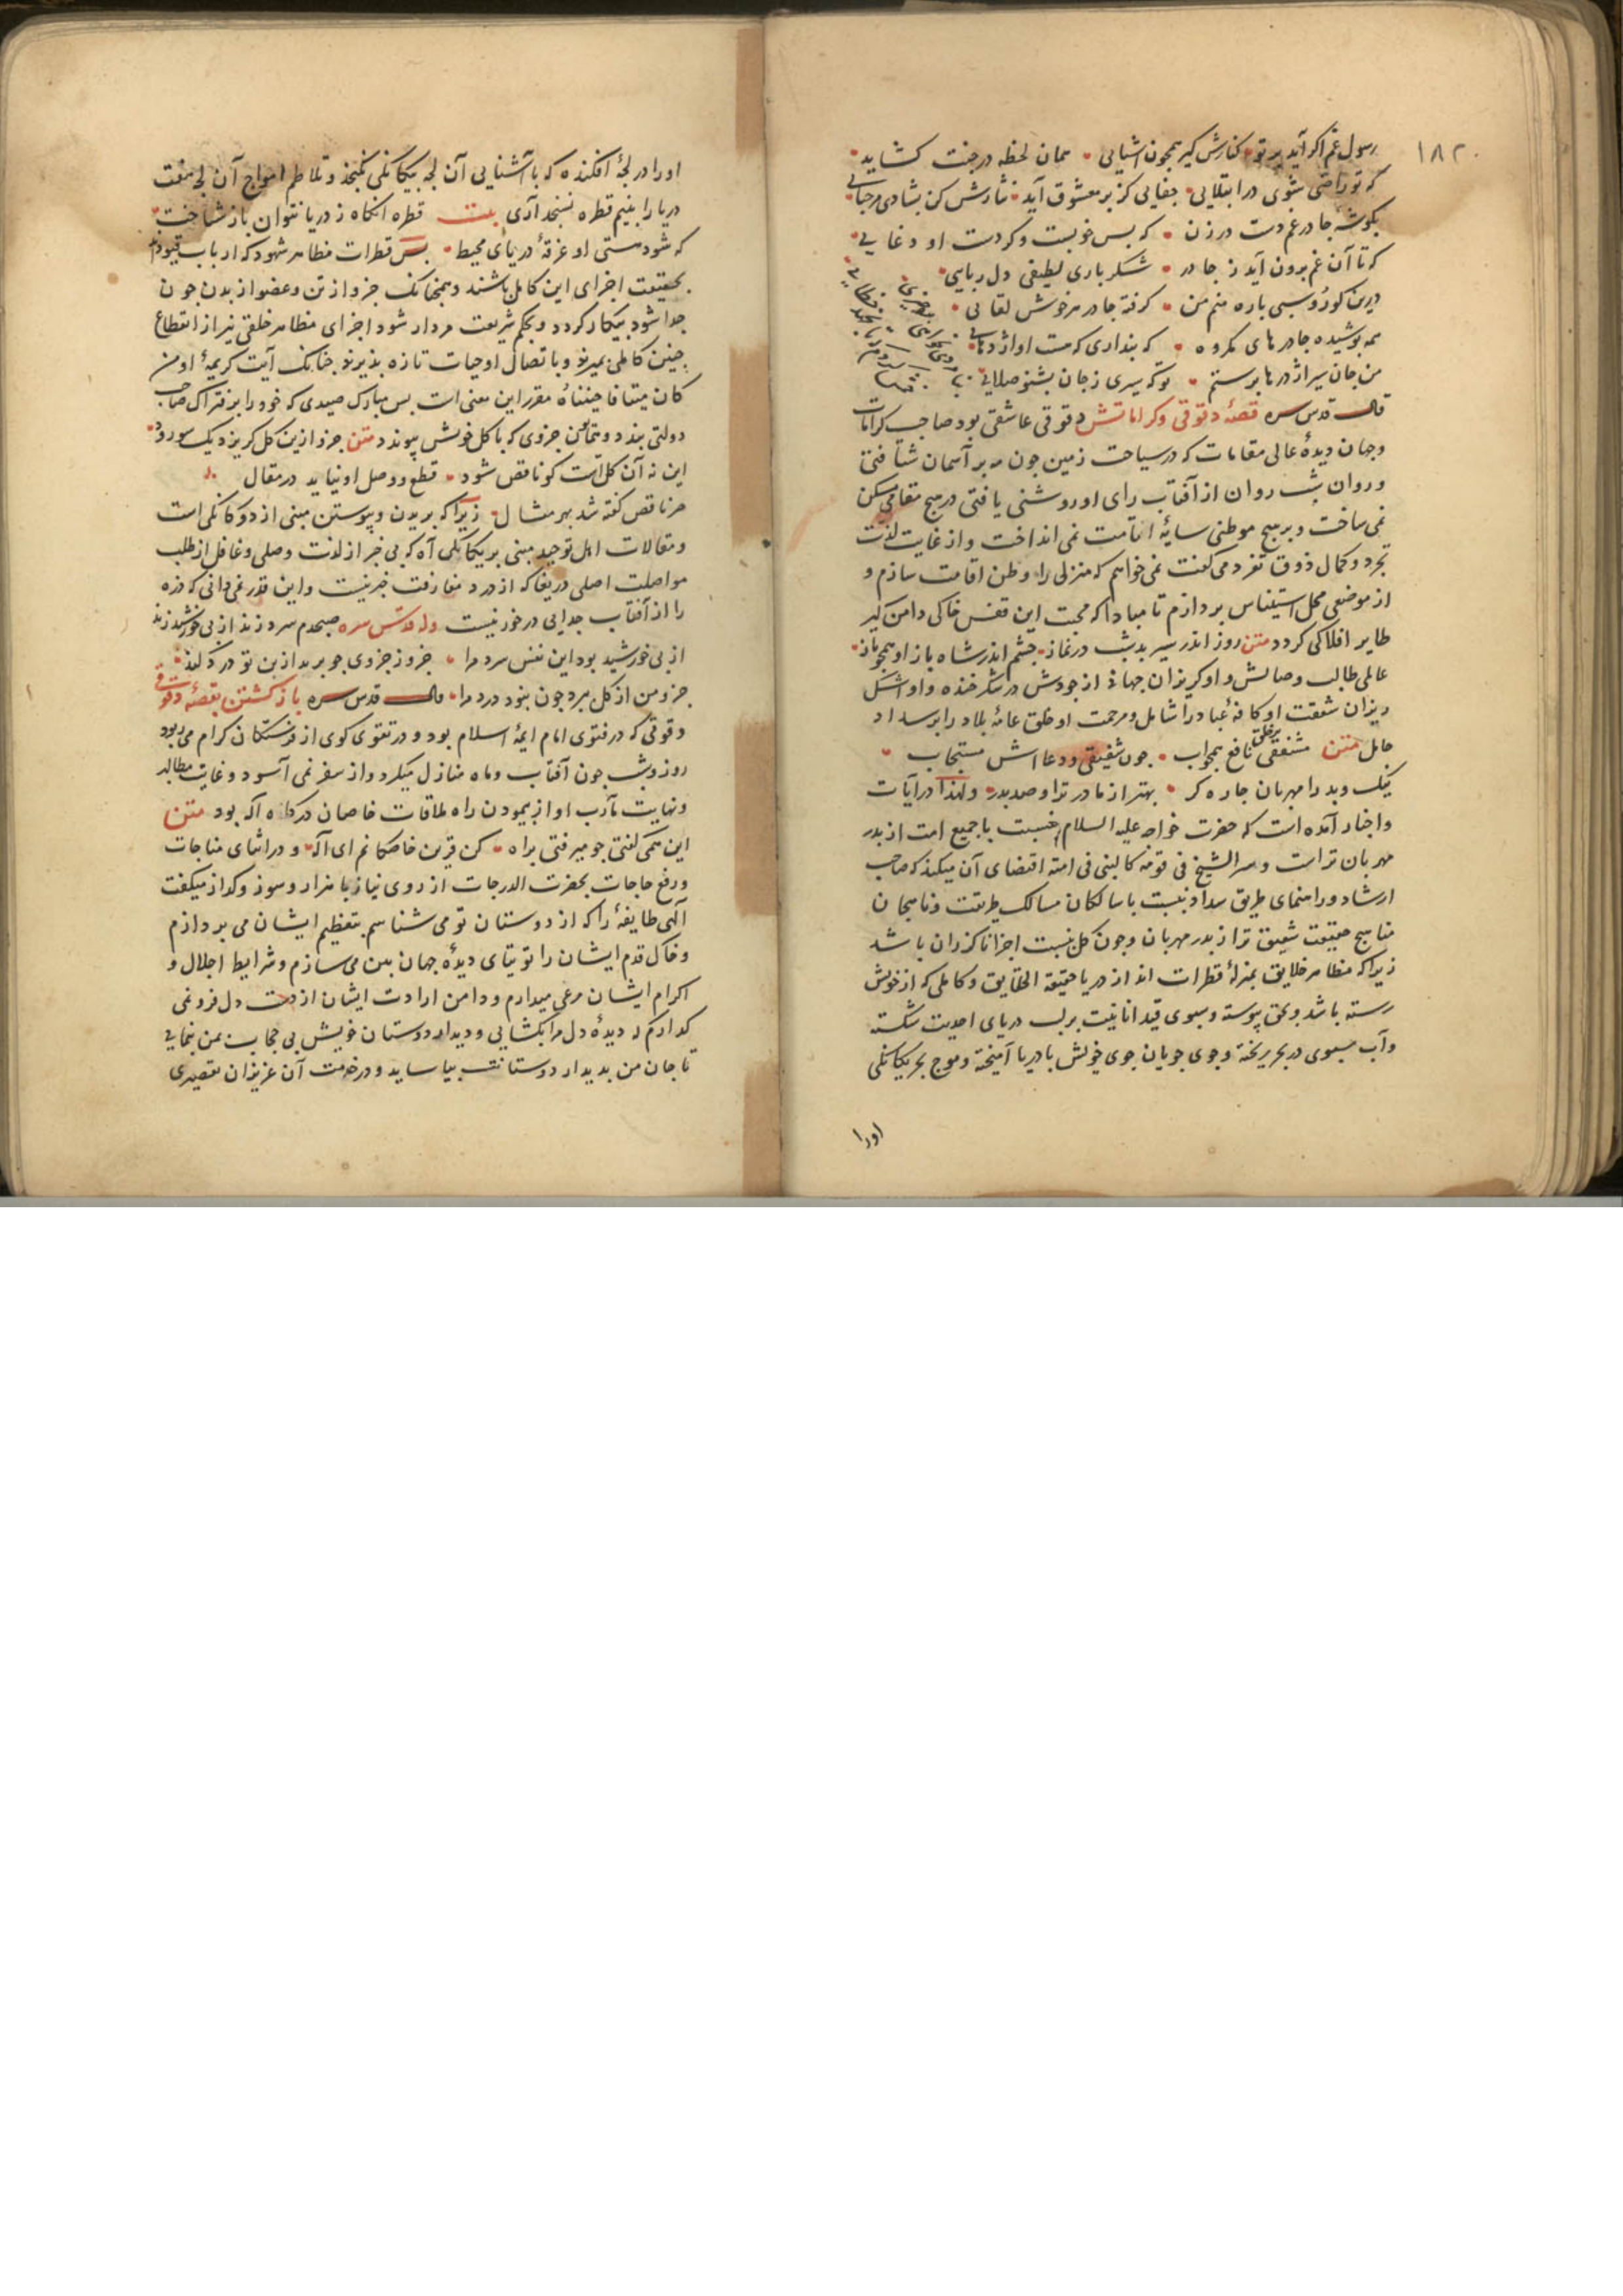 ۱۸۲
رسول غم اگر آید بر تو کنارش گیر همچون آشنایی همان لحظه در جنت گشاید
که تو راضی شوی در ابتلایی جفایی کز بر معشوق آید نثارش کن بشادی مرحبایی
بگوشهٔ چادر غم دست درزن که بس خوبست و کردست او دغایی
که تا آن غم برون آید ز چادر شکر باری لطیفی دل ربایی
درین کو روسبی باره منم من کرفته چادر هر خوش لقایی
همه پوشیده چادرهای مکروه که پنداری که هست او اژدهایی
من جان سیر اژدرها پرستم تو که سیری ز جان بشنو صلایی
قال قدس سره قصهٔ دقوقی و کراماتش دقوقی عاشقی بود صاحب کرامات
و جهان دیدهٔ عالی مقامات که در سیاحت زمین چون مه بر آسمان شتافتی
و روان شب روان از آفتاب رای او روشنی یافتی در هیچ مقامی مسکن
نمی ساخت و بر هیچ موطنی سایهٔ اقامت نمی انداخت و از غایت لذت
تجرد و کمال ذوق تفرد می گفت نمی خواهم که منزلی را وطن اقامت سازم و
از موضعی محل استیناس پردازم تا مبادا که محبت این قفس خاکی دامن گیر
طایر افلاکی گردد متن روز اندر سیر بد شب در نماز چشم اندر شاه باز او همچو باز
عالمی طالب وصالش و او گریزان جهانی از جودش در شکر خنده و او اشک
ریزان شفقت او کافهٔ عباد را شامل و مرحمت او خلق عامهٔ بلاد را بر سداد
حامل متن مشفقی بر خلق نافع همچو آب چون شفیقی و دعااش مستجاب
نیک و بد را مهربان چاره گر بهتر از مادر ترا و صد پدر ولهذا در آیات
و اخبار آمده است که حضرت خواجه علیه السلام نسبت با جمیع امت از پدر
مهربان تر است و سر الشیخ فی قومه کالنبی فی امته اقتضای آن میکند که صاحب
ارشاد و راهنمای طریق سداد نسبت با سالکان مسالک طریقت و ناهجان
مناهج حقیقت شفیق تر از پدر مهربان و چون کل نسبت اجزا ناگزران باشد
زیرا که مظاهر خلایق بمنزلهٔ قطرات اند از دریا حقیقة الحقایق و کاملی که از خویش
رسته باشد و بحق پیوسته و سبوی قید انانیت بر لب دریای احدیت شکسته
و آب سبوی در بحر ریخته و جوی جویان جوی خویش با دریا آمیخته و موج بحر یکانگی
اورا
او را در لجهٔ افکنده که با آشنایی آن لجه بیکانگی نگنجد و تلاطم امواج آن لجه هفت
دریا را بنیم قطره نسنجد آری بیت قطره انکاه ز دریا نتوان باز شناخت
که شود هستی او غرقهٔ دریای محیط پس قطرات مظاهر شهود که ارباب قیودند
بحقیقت اجزای این کامل باشند و همچنانک جزو از تن و عضو از بدن چون
جدا شود بیکار گردد و بحکم شریعت مردار شود اجزای مظاهر خلقی نیز از انقطاع
چنین کاملی بمیرند و باتصال او حیات تازه پذیرند چنانک آیت کریمهٔ اومن
کان میتا فاحییناه مقرر این معنی است پس مبارک صیدی که خود را بر فتراک صاحب
دولتی بندد و همایون جزوی که با کل خویش پیوندد متن جزو ازین کل گر برد یک سو رود
این نه آن کل است کو ناقص شود قطع و وصل او نیاید در مقال
جز ناقص گفته شد بهر مثال زیرا که بریدن و پیوستن مبنی از دوکانگی است
و مقالات اهل توحید مبنی بر یکانگی آه که بی خبر از لذت وصلی و غافل از طلب
مواصلت اصلی دریغا که از درد مفارقت خبر نیست و این قدر نمی دانی که ذره
را از آفتاب جدایی درخور نیست وله قدس سره صبحدم سرد زند از بی خورشید زند
از بی خورشید بود این نفس سرد مرا جزو ز جزوی چو برید از تن تو درد کند
جزو من از کل ببرد چون نبود درد مرا قال قدس سره باز گشتن بقصهٔ دقوقی
دقوقی که در فتوی امام ایمهٔ اسلام بود و در تقوی گوی از فرشتگان کرام می ربود
روز و شب چون آفتاب و ماه منازل میکرد و از سفر نمی آسود و غایت مطالب
و نهایت مآرب او از پیمودن راه ملاقات خاصان درگاه آله بود متن
این همی گفتی چو میرفتی براه کن قرین خاصکانم ای آله و در اثنای مناجات
و رفع حاجات بحضرت الدرجات از روی نیاز با هزار و سوز و گداز میگفت
آلهی طایفهٔ را که از دوستان تو می شناسم بتعظیم ایشان می پردازم
و خاک قدم ایشان را توتیای دیدهٔ جهان بین می سازم و شرایط اجلال و
اکرام ایشان مرعی میدارم و دامن ارادت ایشان از دست دل فرو نمی
گذارم که دیدهٔ دل مرا بگشایی و دیدار دوستان خویش بی حجاب بمن نمایی
تا جان من بدیدار دوستانت بیاساید و در خدمت آن عزیزان تقصیری